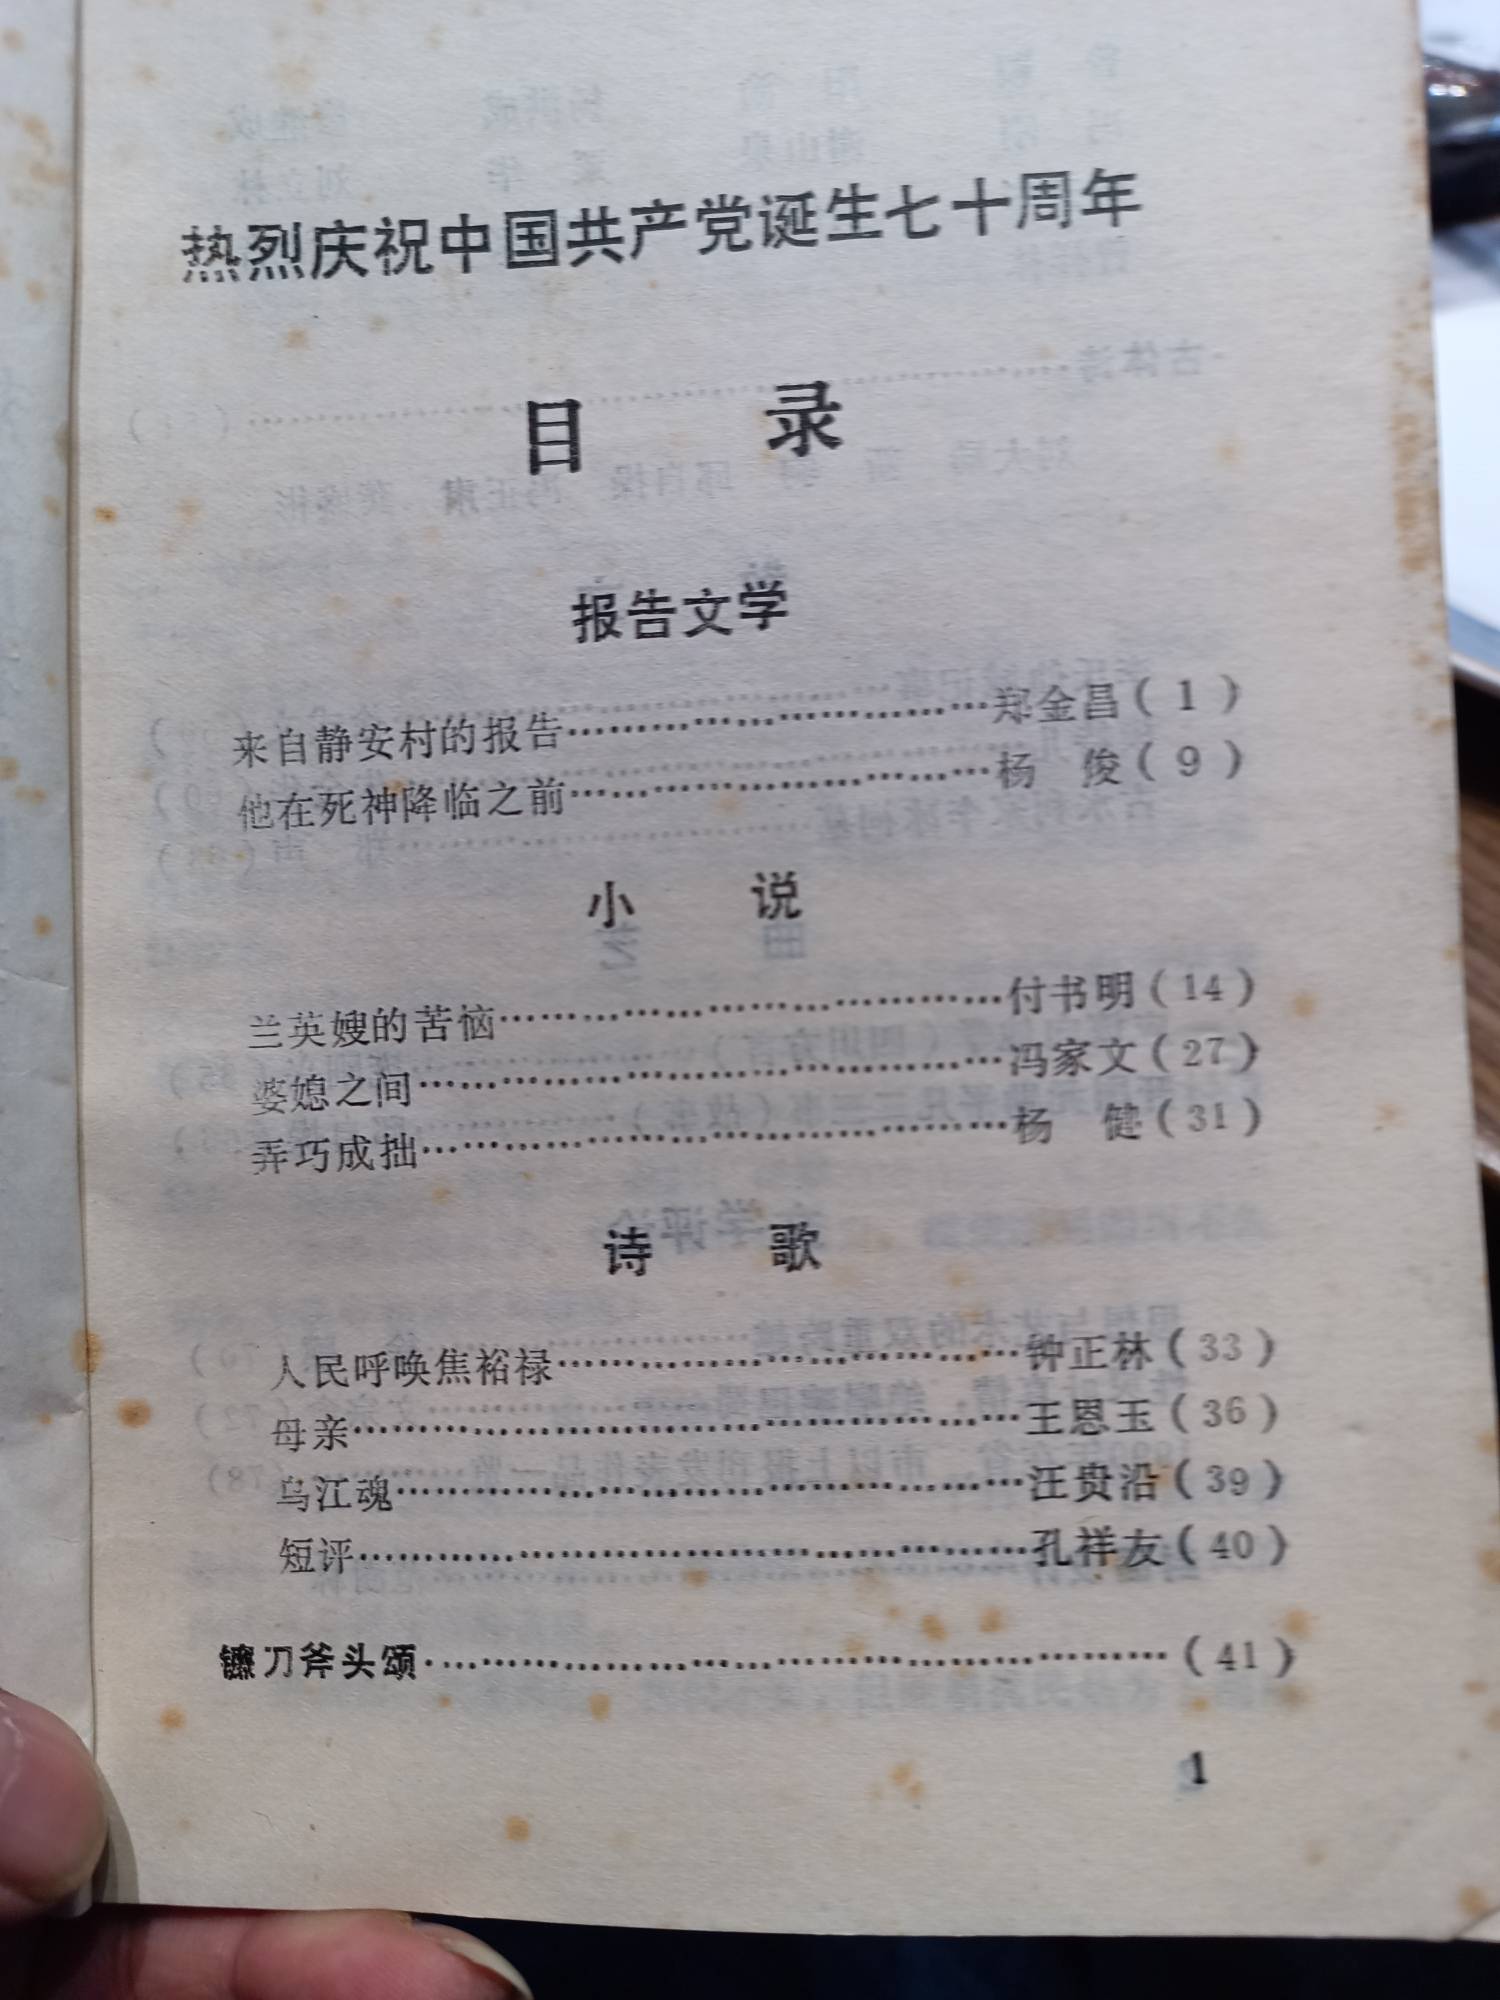 热烈庆祝中国共产党诞生七十周年
目 录
报告文学
来自静安村的报告……………………………郑金昌(1)
他在死神降临之前……………………………杨 俊(9)
小 说
兰英嫂的苦恼…………………………………付书明(14)
婆媳之间………………………………………冯家文(27)
弄巧成拙………………………………………杨 健(31)
诗 歌
人民呼唤焦裕禄………………………………钟正林(33)
母亲……………………………………………王恩玉(36)
乌江魂…………………………………………汪贵沿(39)
短评……………………………………………孔祥友(40)
镰刀斧头颂……………………………………………(41)
1